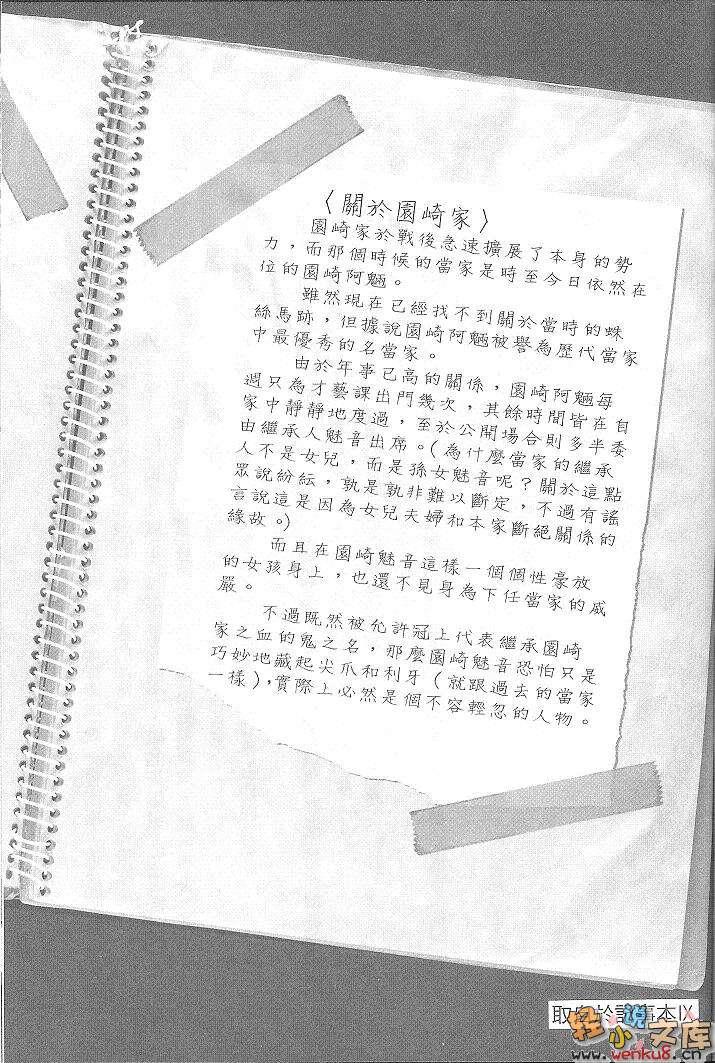 〈關於園崎家〉
園崎家於戰後急速擴展了本身的勢
力，而那個時候的當家是時至今日依然在
位的園崎阿魎。
雖然現在已經找不到關於當時的蛛
絲馬跡，但據說園崎阿魎被譽為歷代當家
中最優秀的名當家。
由於年事已高的關係，園崎阿魎每
週只為才藝課出門幾次，其餘時間皆在自
家中靜靜地度過，至於公開場合則多半委
由繼承人魅音出席。(為什麼當家的繼承
人不是女兒，而是孫女魅音呢？關於這點
眾說紛紜，孰是孰非難以斷定，不過有謠
言說這是因為女兒夫婦和本家斷絕關係的
緣故。)
而且在園崎魅音這樣一個個性豪放
的女孩身上，也還不見身為下任當家的威
嚴。
不過既然被允許冠上代表繼承園崎
家之血的鬼之名，那麼園崎魅音恐怕只是
巧妙地藏起尖爪和利牙（就跟過去的當家
一樣），實際上必然是個不容輕忽的人物。
取自於記事本Ⅸ
轻小说文库
www.wenku8.cn